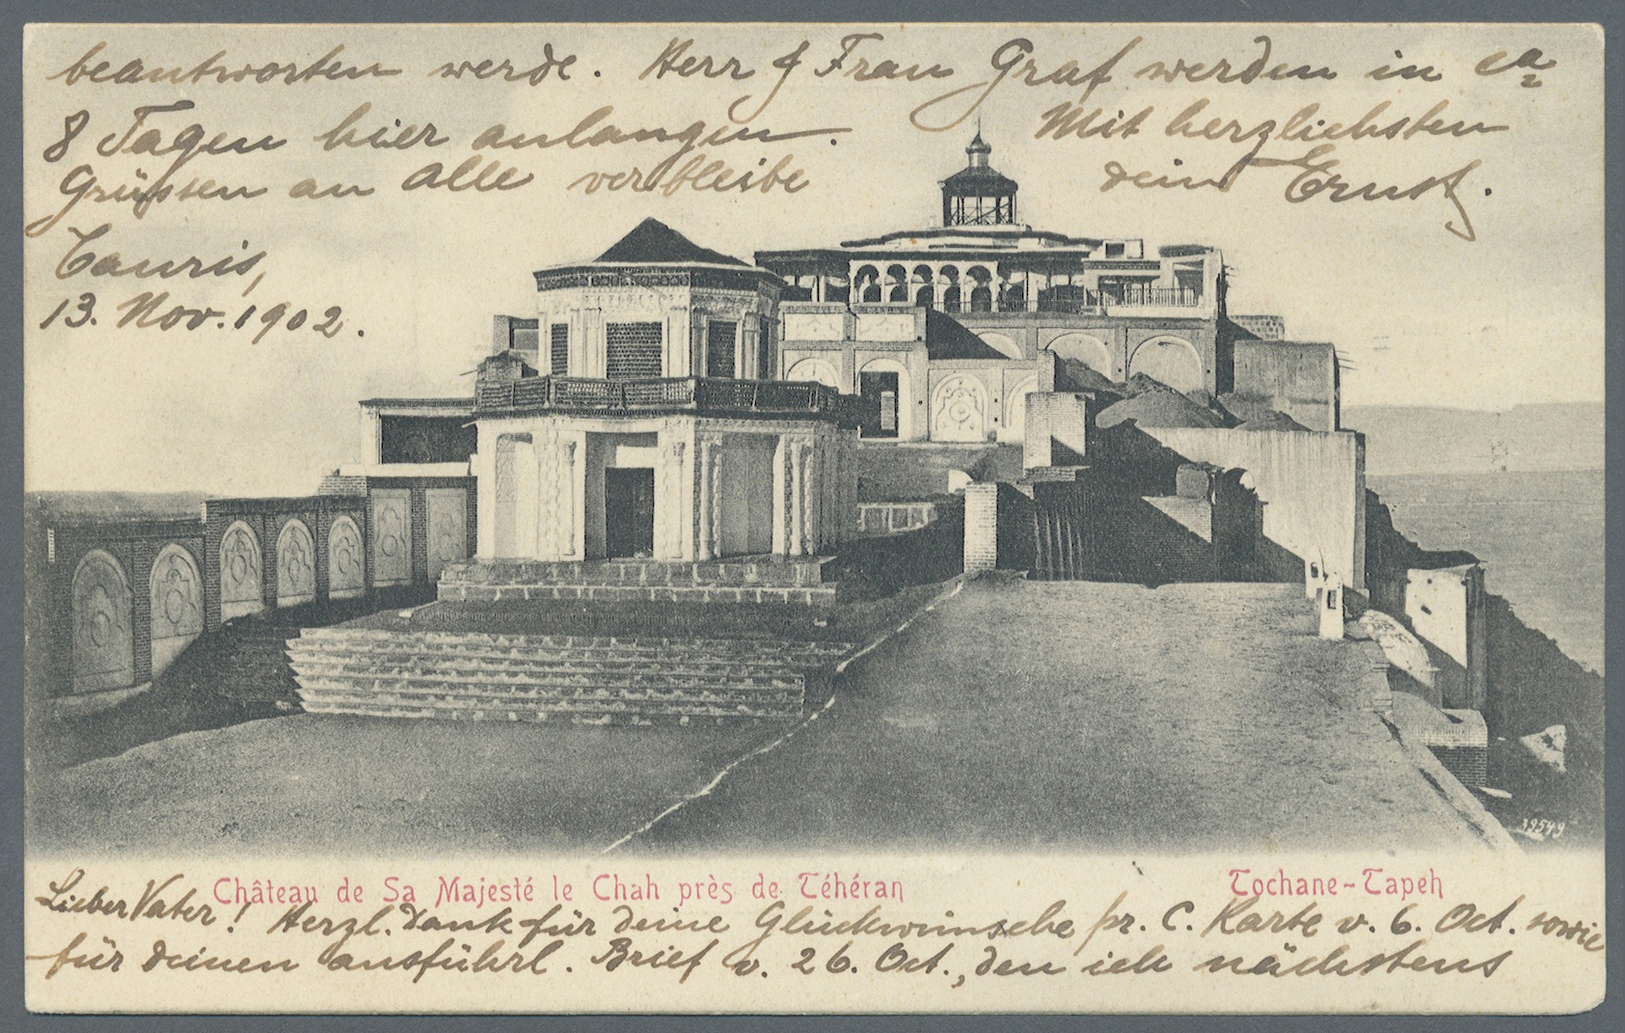 beantworten werde. Herr & Frau Graf werden in ca
8 Tagen hier anlangen. Mit herzlichsten
Grüssen an Alle verbleibe dein Ernst.
Tauris,
13. Nov. 1902.
19549
Château de Sa Majesté le Chah près de Téhéran
Tochane-Tapeh
Lieber Vater! Herzl. Dank für deine Glückwünsche pr. C. Karte v. 6. Oct. sowie
für deinen ausführl. Brief v. 26. Oct., den ich nächstens